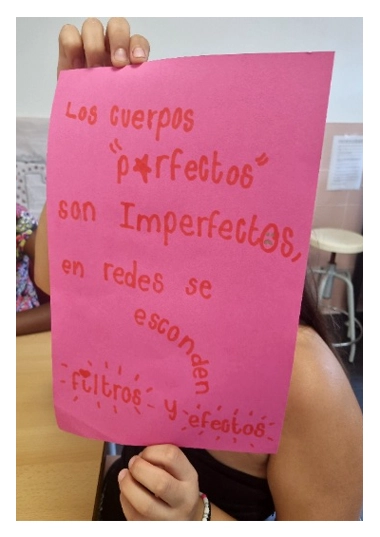 Los cuerpos
"p★rfectos"
son Imperfectos,
en redes se
esconden
filtros y efectos